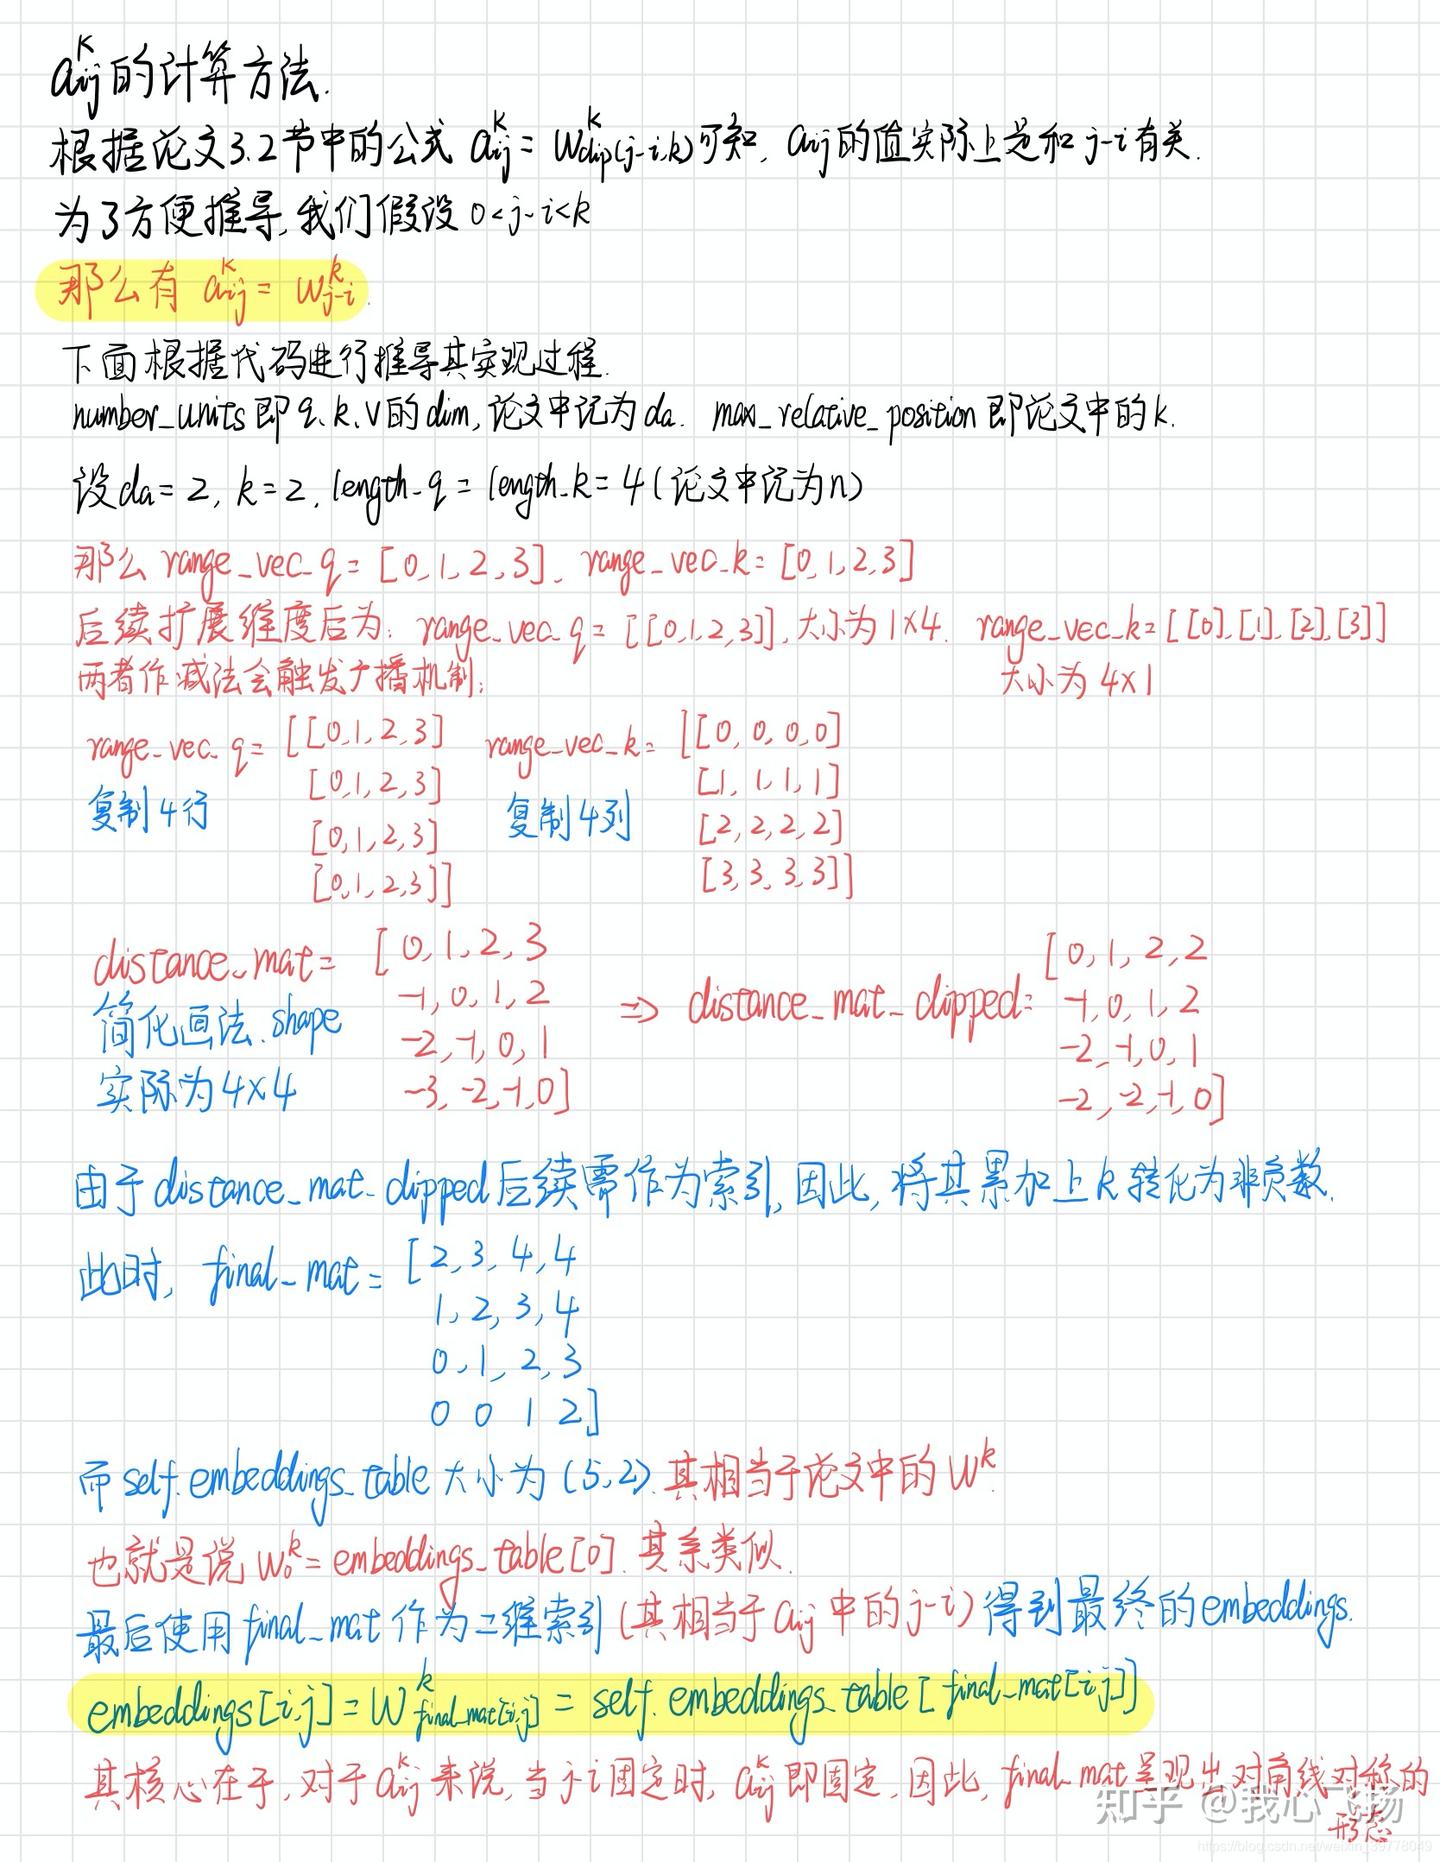 a_{ij}^K的计算方法.
根据论文3.2节中的公式 a_{ij}^K = w^K_{clip(j-i,k)}可知, a_{ij}的值实际上是和 j-i 有关.
为了方便推导,我们假设 0<j-i<k
那么有 a_{ij}^K = w_{j-i}^k.
下面根据代码进行推导其实现过程.
number_units即q、k、v的dim,论文中记为da. max_relative_position即论文中的k.
设da=2, k=2, length_q = length_k = 4(论文中记为n)
那么 range_vec_q = [0,1,2,3], range_vec_k = [0,1,2,3]
后续扩展维度后为: range_vec_q = [[0,1,2,3]], 大小为1×4. range_vec_k=[[0],[1],[2],[3]]
两者作减法会触发广播机制: 大小为 4×1
range_vec_q = [[0,1,2,3] range_vec_k = [[0,0,0,0]
复制4行 [0,1,2,3] 复制4列 [1,1,1,1]
[0,1,2,3] [2,2,2,2]
[0,1,2,3]] [3,3,3,3]]
distance_mat = [0,1,2,3 [0,1,2,2
简化画法.shape -1,0,1,2 ⇒ distance_mat_clipped= -1,0,1,2
-2,-1,0,1 -2,-1,0,1
实际为4×4 -3,-2,-1,0] -2,-2,-1,0]
由于distance_mat_clipped后续需作为索引,因此,将其累加上k转化为非负数.
此时, final_mat = [2,3,4,4
1,2,3,4
0,1,2,3
0 0 1 2]
而self.embeddings_table大小为(5,2).其相当于论文中的W^k.
也就是说w_0^k = embeddings_table[0].其余类似
最后使用final_mat作为二维索引(其相当于a_{ij}中的j-i)得到最终的embeddings.
embeddings[i,j] = W^k_{final_mat[i,j]} = self.embeddings_table[final_mat[i,j]]
其核心在于,对于a_{ij}^K来说,当j-i固定时,a_{ij}^K即固定,因此,final_mat呈现出对角线对称的
形态
知乎 @我心飞扬
https://blog.csdn.net/weixin_39778049